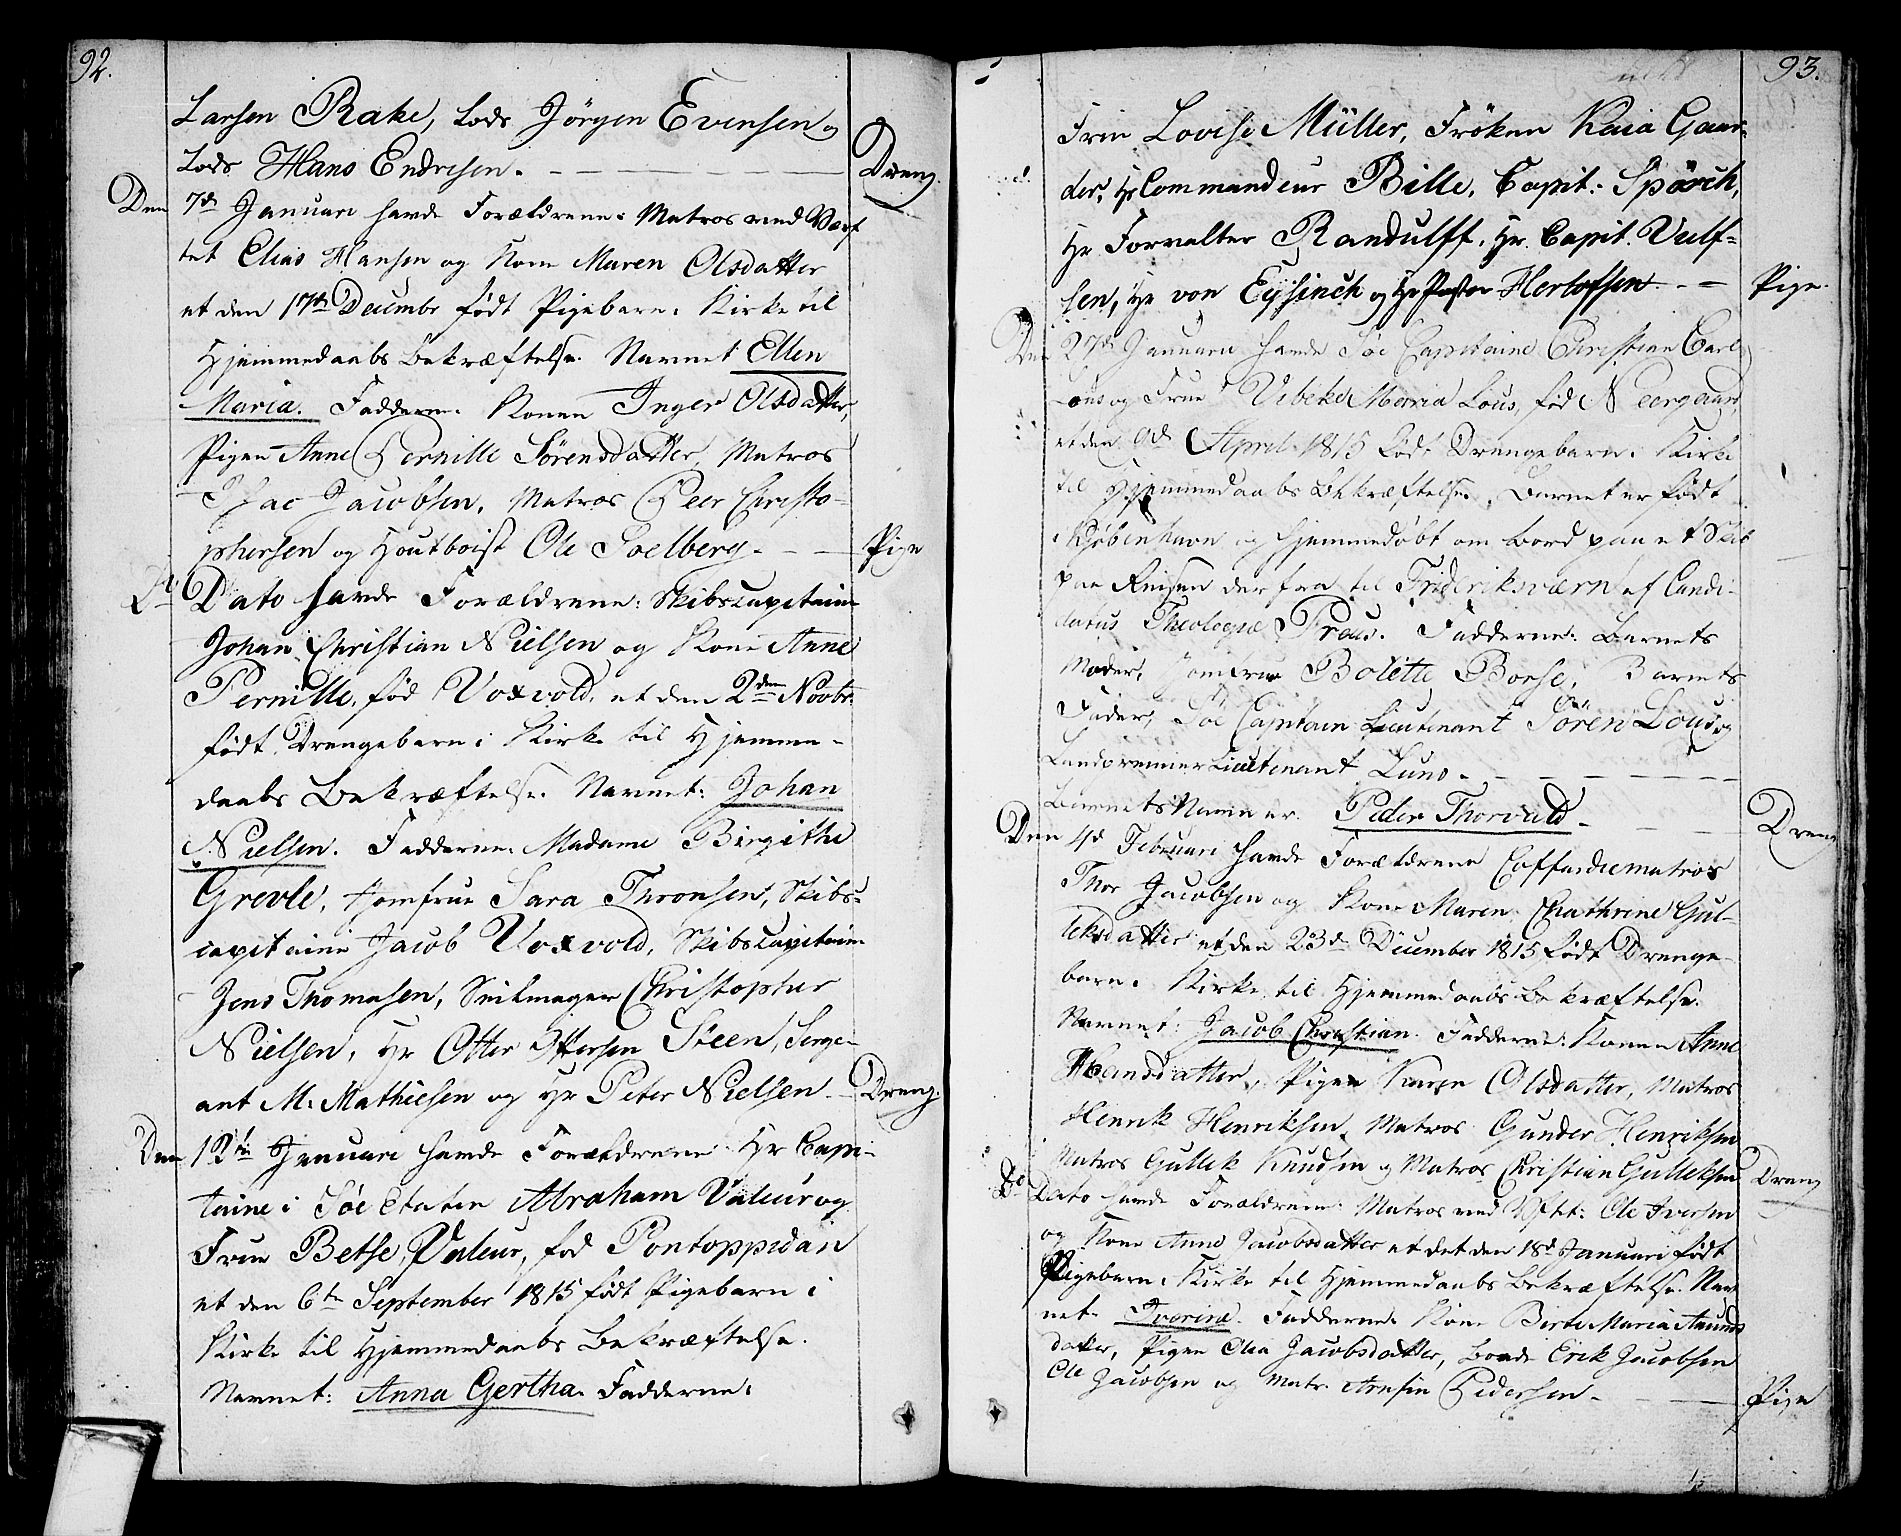 92.
Larsen Rake, Lods Jörgen Evensen og
Lods Hans Endresen. Dreng.
Den 7de Januari havde Forældrene: Matros ved Værf
tet Elias Hansen og Kone Maren Olsdatter
et den 17de Decembr født Pigebarn i Kirke til
Hjemmedaabs Bekræftelse. Navnet Ellen
Maria. Fadderne: Konen Inger Olsdatter,
Pigen Anne Pernille Sørensdatter, Matros
Isac Jacobsen, Matros Peer Christo-
phersen og Houtboist Ole Soelberg. Pige
Do Dato havde Forældrene: Skibscapitain
Johan Christian Nielsen og Kone Anne
Pernille, fød Voxvold, et den 2den Novbr.
født Drengebarn i Kirke til Hjemme-
daabs Bekræftelse. Navnet: Johan
Nielsen. Fadderne: Madame Birgithe
Grevle, Jomfrue Sara Thronsen, Skibs-
capitaine Jacob Voxvold, Skibscapitain
Jens Thomasen, Seilmager Christopher
Nielsen, Hr Otter Ottersen Steen, Serge-
ant M. Mathiesen og Hr Peter Nielsen. Dreng.
Den 13de Januari havde Forældrene Hr Capi-
taine i Søe Etaten Abraham Valeur og
Frue Betse Valeur, fød Pontoppidan
et den 6te September 1815 født Pigebarn i
Kirke til Hjemmedaabs Bekræftelse.
Navnet: Anna Gertha. Fadderne:
93.
Frue Lovise Müller, Frøken Kaia Gaar-
der, Hr Commandeur Bille, Capit: Spörck,
Hr Forvalter Randulff, Hr. Capit. Vulf-
sen, Hr von Eysinch og Hr Herlofsen. Pige.
Den 27de Januari havde Söe Capitaine Christian Carl
Lous og Frue Vibeke Maria Lous, fød Neergaard,
et den 9d April 1815 født Drengebarn i Kirke
til Hjemmedaabs Bekræftelse. Barnet er født
i Kjøbenhavn og hjemmedøbt om Bord paa et Skib
paa Reisen derfra til Frideriksværn af Candi-
datus Theologiæ Preus. Fadderne: Barnets
Moder, Jomfrue Bolette Borse, Barnets
Fader, Söe Capitain Lieutenant Sören Lous og
Landpremier Lieutenant Lund.
Barnets Navn er: Peder Thorvald. Dreng
Den 4d Februari havde Forældrene Coffardiematros
Thor Jacobsen og Kone Maren Chathrine Gul-
leksdatter et den 23de December 1815 født Drenge-
barn i Kirke til Hjemmedaabs Bekræftelse.
Navnet: Jacob Christian. Fadderne: Konen Anne
Hansdatter, Pigen Karen Olsdatter, Matros
Henrik Henriksen, Matros Gunder Henriksen
Matros Gullik Knudsen og Matros Christian Gulleksen. Dreng
Do Dato havde Forældrene: Matros ved Vftet: Ole Iversen
og Kone Anne Jacobsdatter et det den 18d Januari født
Pigebarn i Kirke til Hjemmedaabs Bekræftelse. Nav
net: Ivorine. Fadderne: Kone Birte Maria Amunds
datter, Pigen Elia Jacobsdatter, Bonde Erik Jacobsen
Ole Jacobsen og Matr. Arnsin Pedersen. Pige